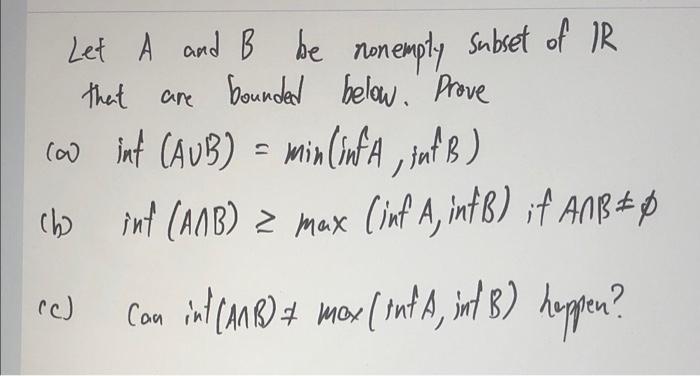 Let A and B be nonempty subset of ℝ
that are bounded below. Prove
(a) inf (A∪B) = min(inf A, inf B)
(b) inf (A∩B) ≥ max (inf A, inf B) if A∩B ≠ ∅
(c) Can inf(A∩B) ≠ max(inf A, inf B) happen?